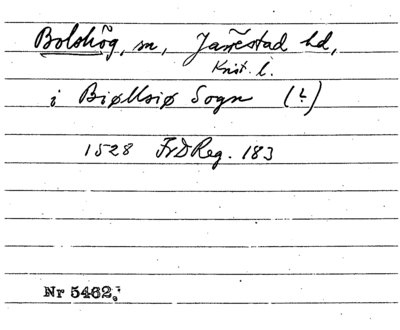 Bolshög, m, Jarrestad hd,
Krist. l.
i Biøllsiø Sogn (?)
1528 FrDReg. 183
Nr 5462.